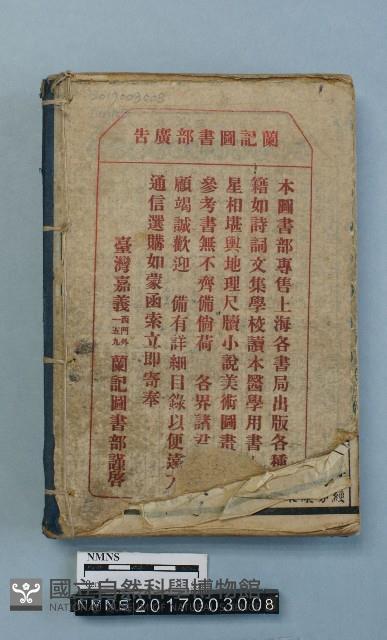 2017003008
蘭記圖書部廣告
本圖書部專售上海各書局出版各種
籍如詩詞文集學校讀本醫學用書
星相堪輿地理尺牘小說美術圖畫
參考書無不齊備倘荷 各界諸君
顧竭誠歡迎 備有詳細目錄以便遠人
通信選購如蒙函索立即寄奉
臺灣嘉義西門外一五九 蘭記圖書部謹啓
NMNS
國立自然科學博物館
NMNS2017003008